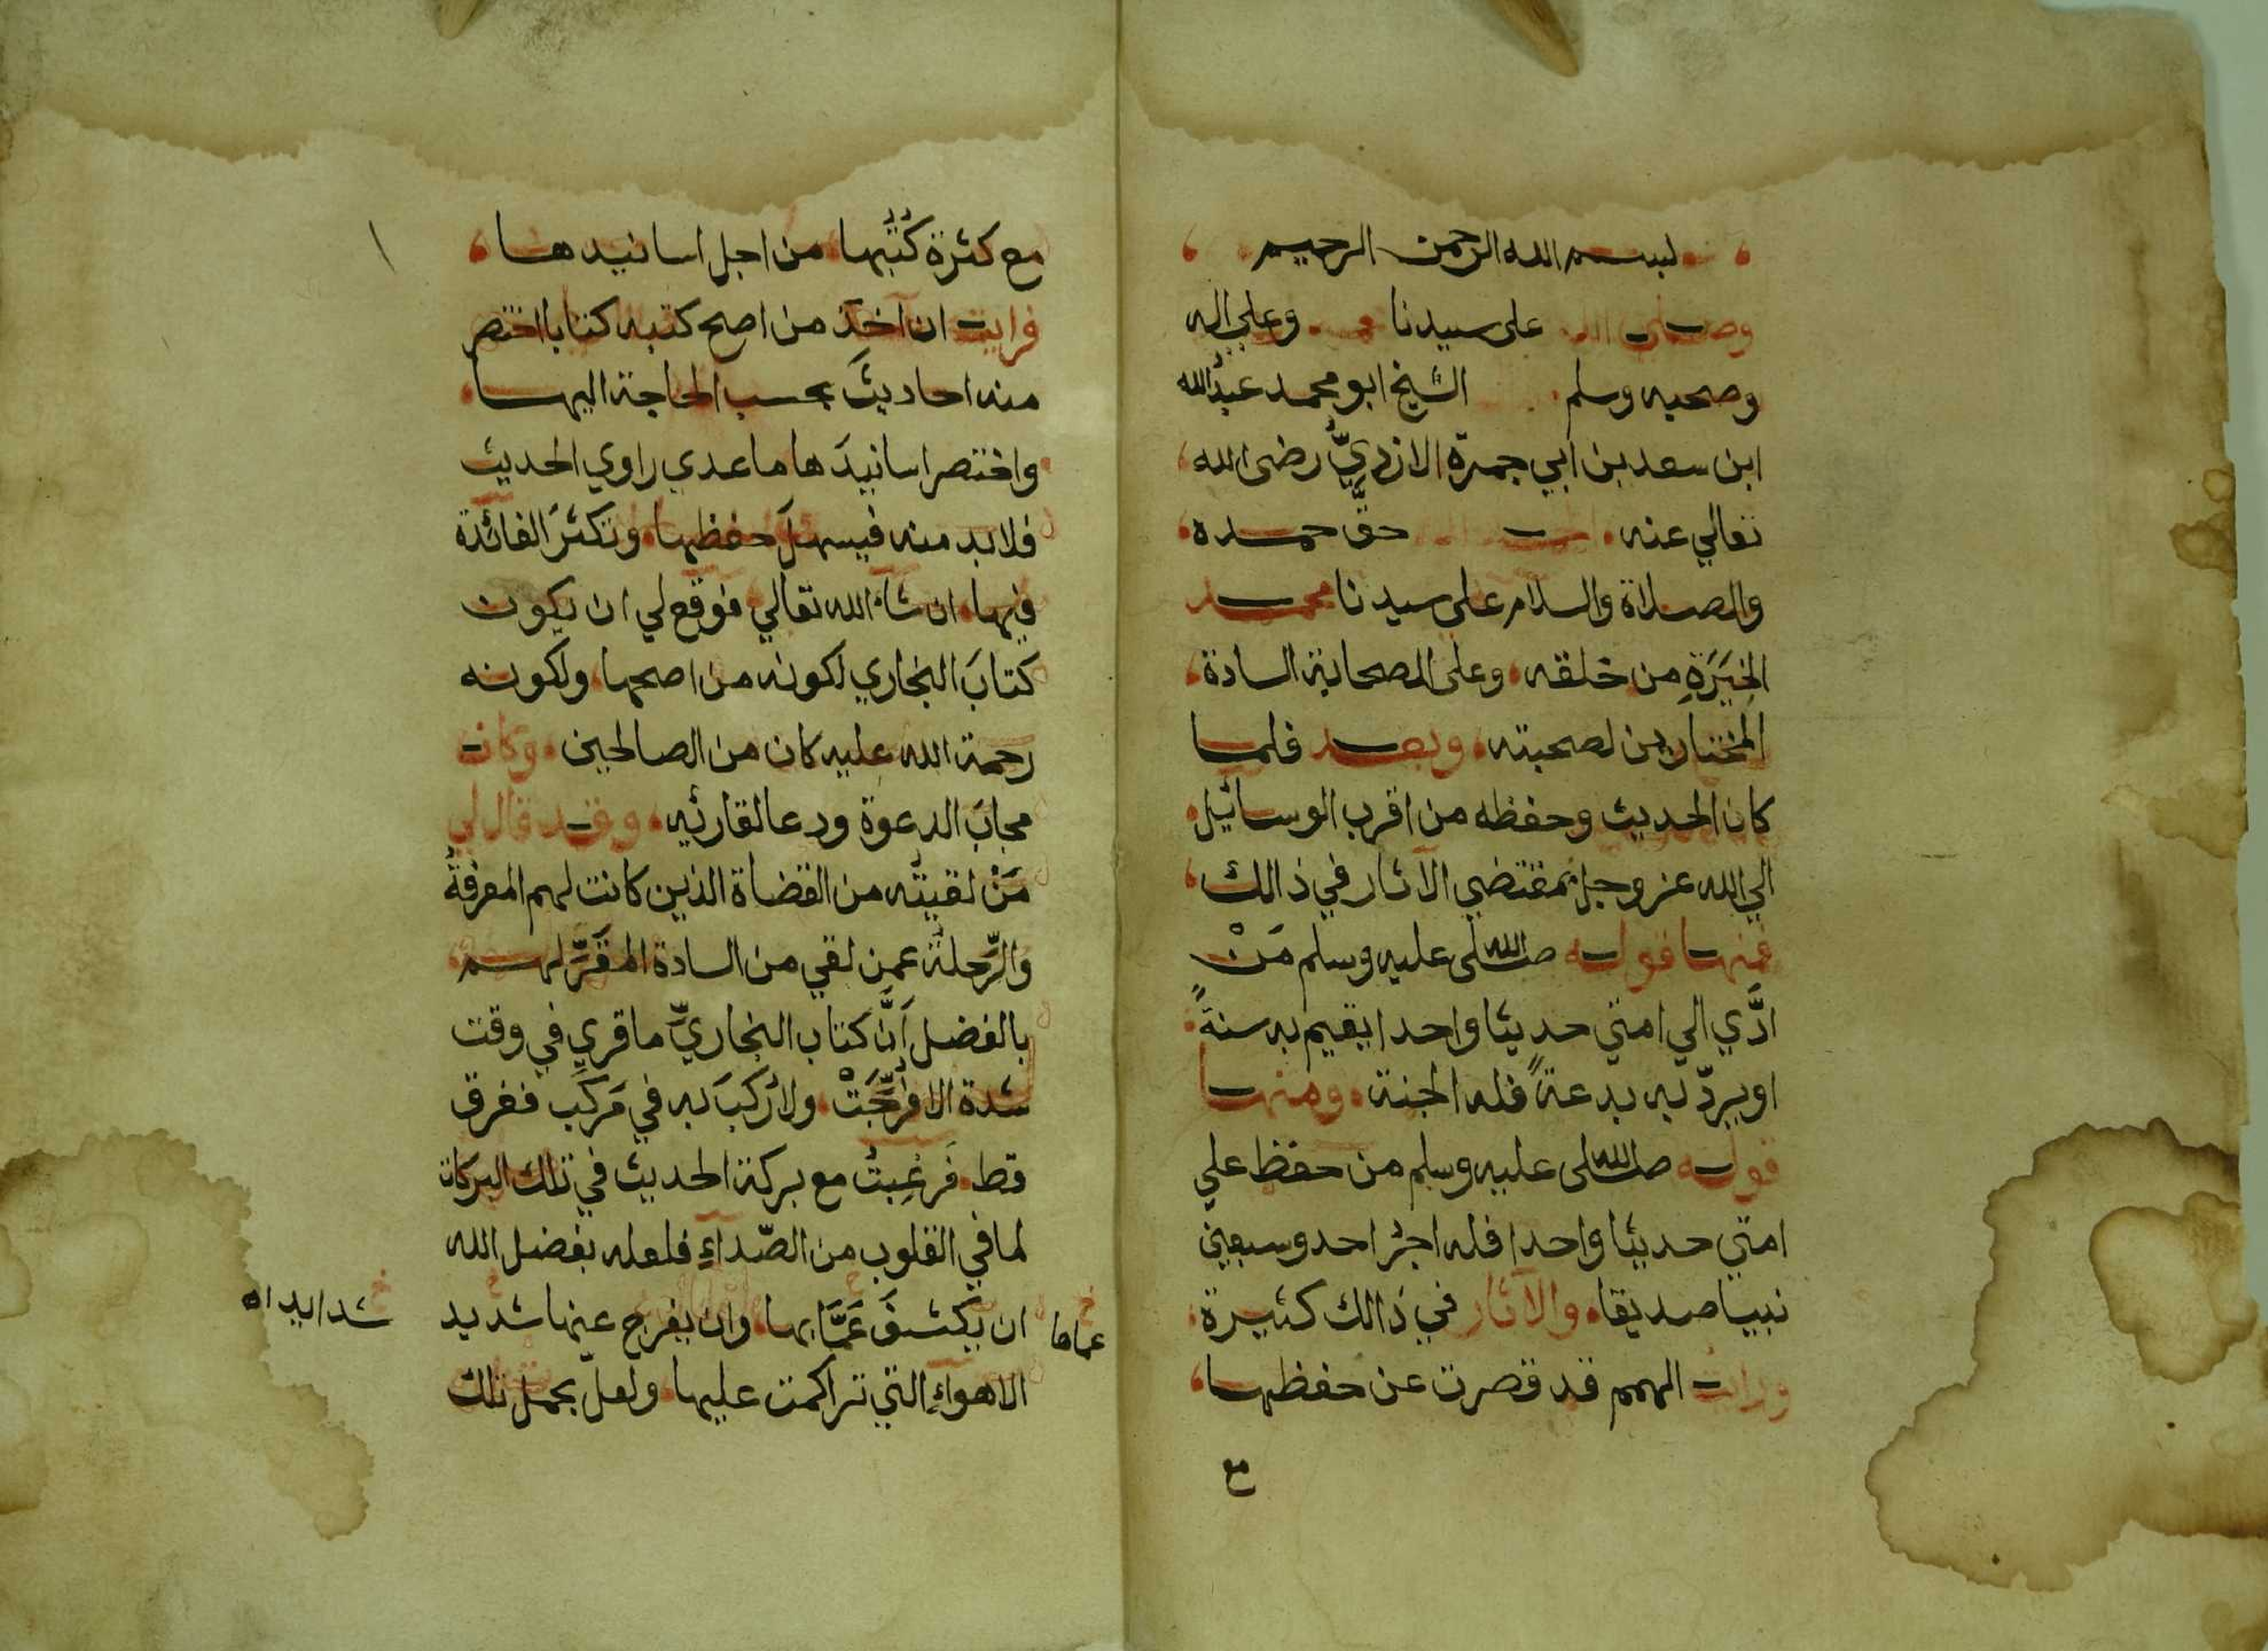 بسم الله الرحمن الرحيم
وصلى الله على سيدنا محمد وعلي اله
وصحبه وسلم الشيخ ابو محمد عبد الله
ابن سعد بن ابي جمرة الازديّ رضى الله
تعالي عنه حقَّ حمده
والصلاة والسلام على سيدنا محمد
الخِيَرَةِ من خلقه وعلى الصحابة السادة
المختارين لصحبته وبعد فلما
كان الحديث وحفظه من اقرب الوسائيل
الي الله عز وجل بمقتضي الآثار في ذالك
فمنها قوله صلى الله عليه وسلم مَنْ
ادَّي الي امتي حديثا واحدا يقيم به سنةً
او يردّ به بدعةً فله الجنة ومنها
قوله صلى الله عليه وسلم من حفظ علي
امتي حديثا واحدا فله اجرُ احد وسبعين
نبيا صديقا والآثار في ذالك كثيرة
ورايت الهمم قد قصرت عن حفظها
مع
١
مع كثرة كُتُبها من اجل اسانيدها
فرايت ان اخذ من اصح كتبه كتابا اختصر
منه احاديثَ بحسب الحاجة اليها
واختصر اسانيدَها ما عدي راوي الحديث
فلا بد منه فيسهلَ حفظها وتكثرَ الفائدة
فيها ان شآء الله تعالي فوقع لي ان يكون
كتابَ البخاري لكونه من اصحها ولكونه
رحمة الله عليه كان من الصالحين وكان
مجابَ الدعوة ودعا لقارئيه وقد قال لي
مَنْ لقيتُه من القضاة الذين كانت لهم المعرفةُ
والرِّحلةُ عمن لقي من السادة المقَرِّ لهم
بالفضل اَنَّ كتاب البخاريّ ما قري في وقت
شدة الا فُرِّجَتْ ولا رُكبَ به في مَركَب فغرق
قط فَرغِبتُ مع بركة الحديث في تلك البركات
لما في القلوب من الصّداءِ فلعله بفضل الله
ان يكشفَ عَمَّابها وان يفرج عنها شديد
عماها
شدايد اه
الاهواءِ التي تراكمت عليها ولعلّ بحمل تلك